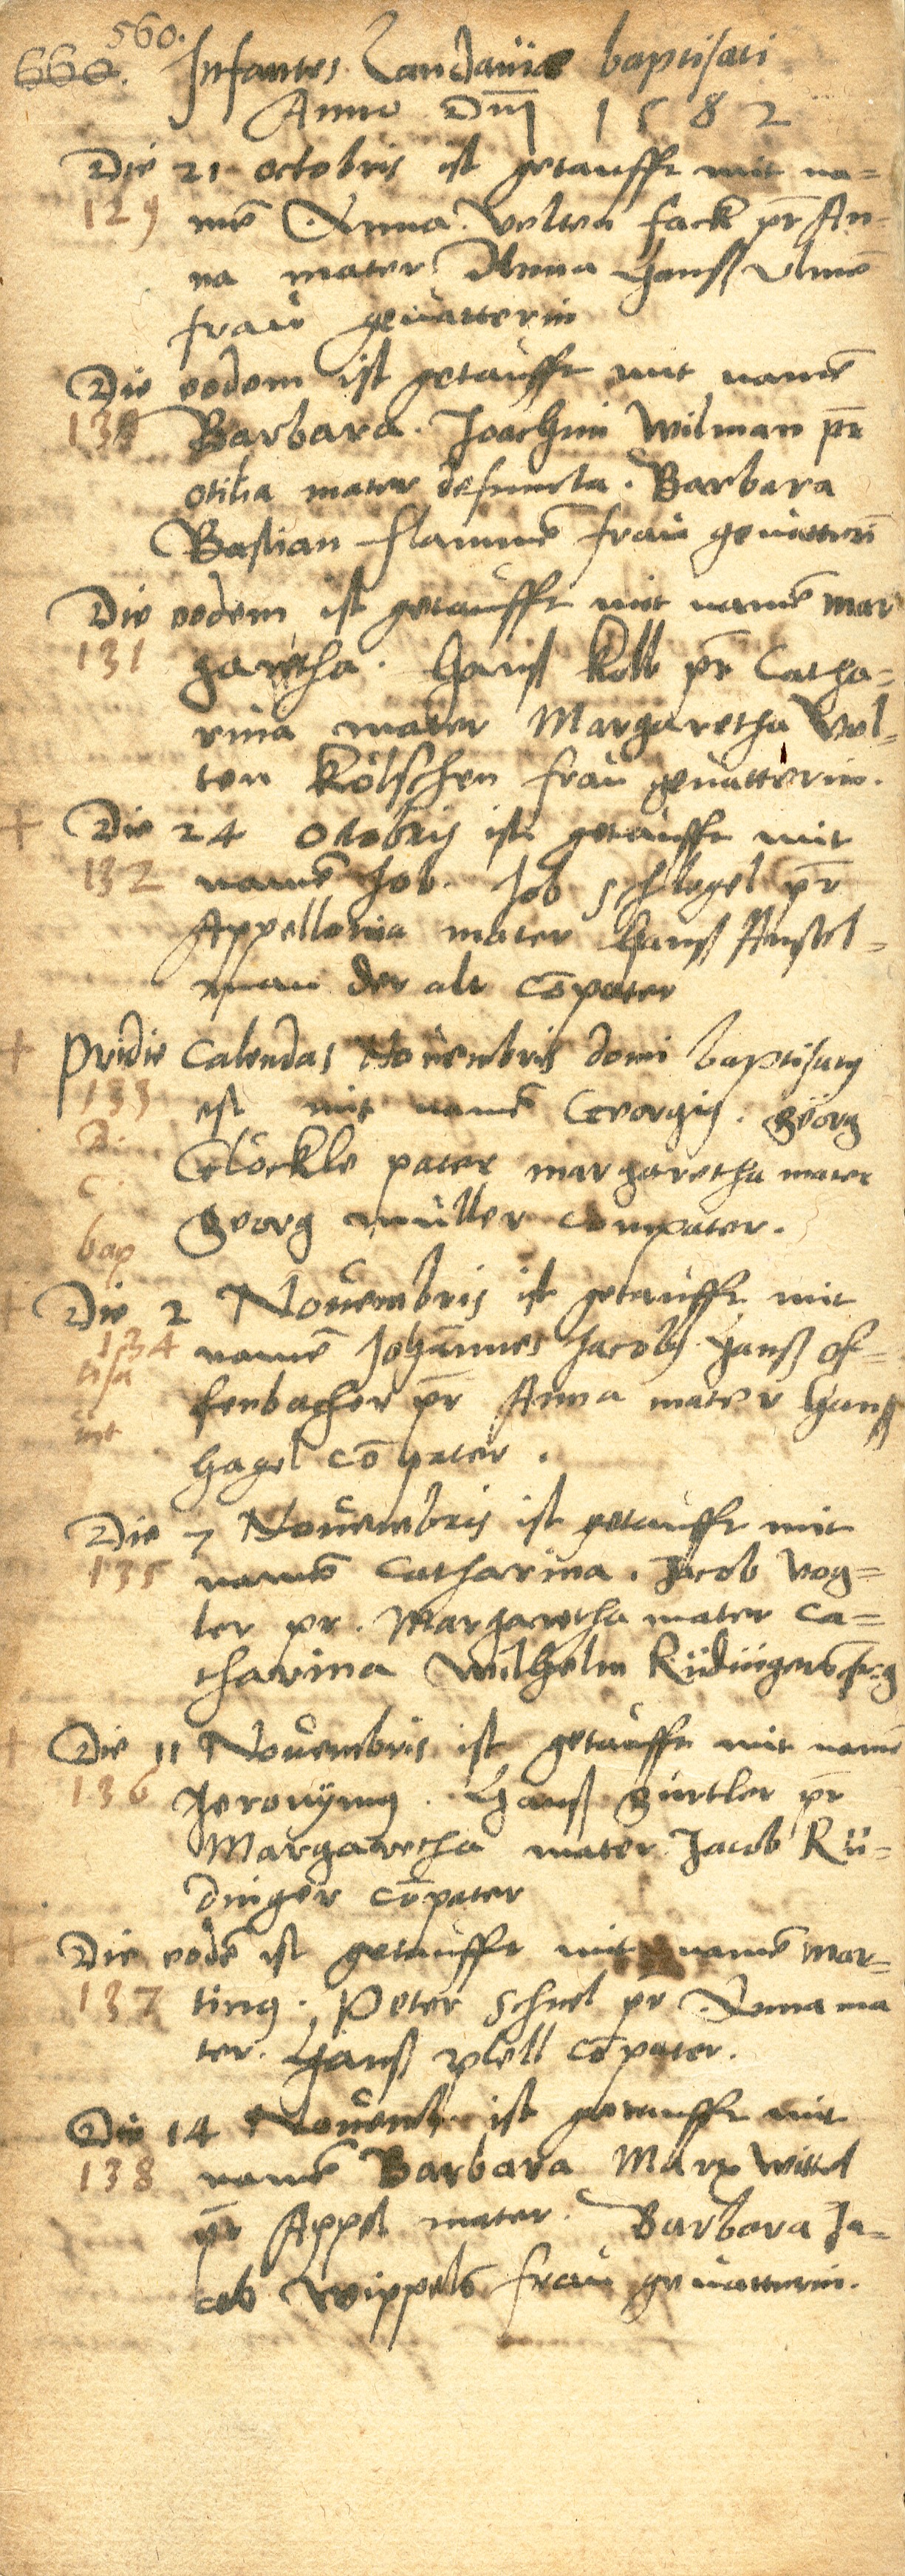 560.
660. Infantes Landauiæ baptisati
Anno Dnī 1582
Die 21 octobris ist getaufft mit na=
129 mē Anna. Velten fack pr̄ An-
na mater Anna Hanß Vlmē
frau geuatterin
Die eodem ist getaufft mit namē
130 Barbara. Joachim Wilman pr̄
otilia mater defuncta. Barbara
Bastian flammē frau geuatterī
Die eodem ist getaufft mit namē mar
131 garetha. Hanß Koll pr̄ Catha=
rina mater Margaretha Vel=
ten Kölschen frau geuatterin.
+ Die 24 Otobris ist getaufft mit
132 namē Job. Job schlegel pr̄
Appellonia mater Hanß Anstel=
man der alt cōpater
+ Pridie Calendas Nouembris domi baptisatus
133 est mit namē Georgius. Georg
D. Glöckle pater margaretha mater
C. Georg müller compater.
bap
+ Die 2 Nouembris ist getaufft mit
134 namē Johānnes Jacobus Hanß of=
tisa fenbacher pr̄ Anna mater Hanß
int Hagel cōpater.
Die 7 Nouembris ist getaufft mit
135 namē Catharina. Jacob Vog=
ler pr. Margaretha mater Ca=
tharina Wilhelm Rüdingers fr. g
+ Die 11 Nouembris ist getaufft mit namē
136 Jeronymus. Hanß Gürtler pr̄
Margaretha mater Jacob Rü=
dinger cōpater
+ Die eodē ist getaufft mit namē Mar=
137 tinus. Peter Schnel pr̄ Anna ma
ter. Hanß plell cōpater.
Die 14 Nouemb. ist getaufft mit
138 namē Barbara Marx Wittel
pr̄ Appel mater. Barbara Ja=
cob Wippels frau geuatterin.